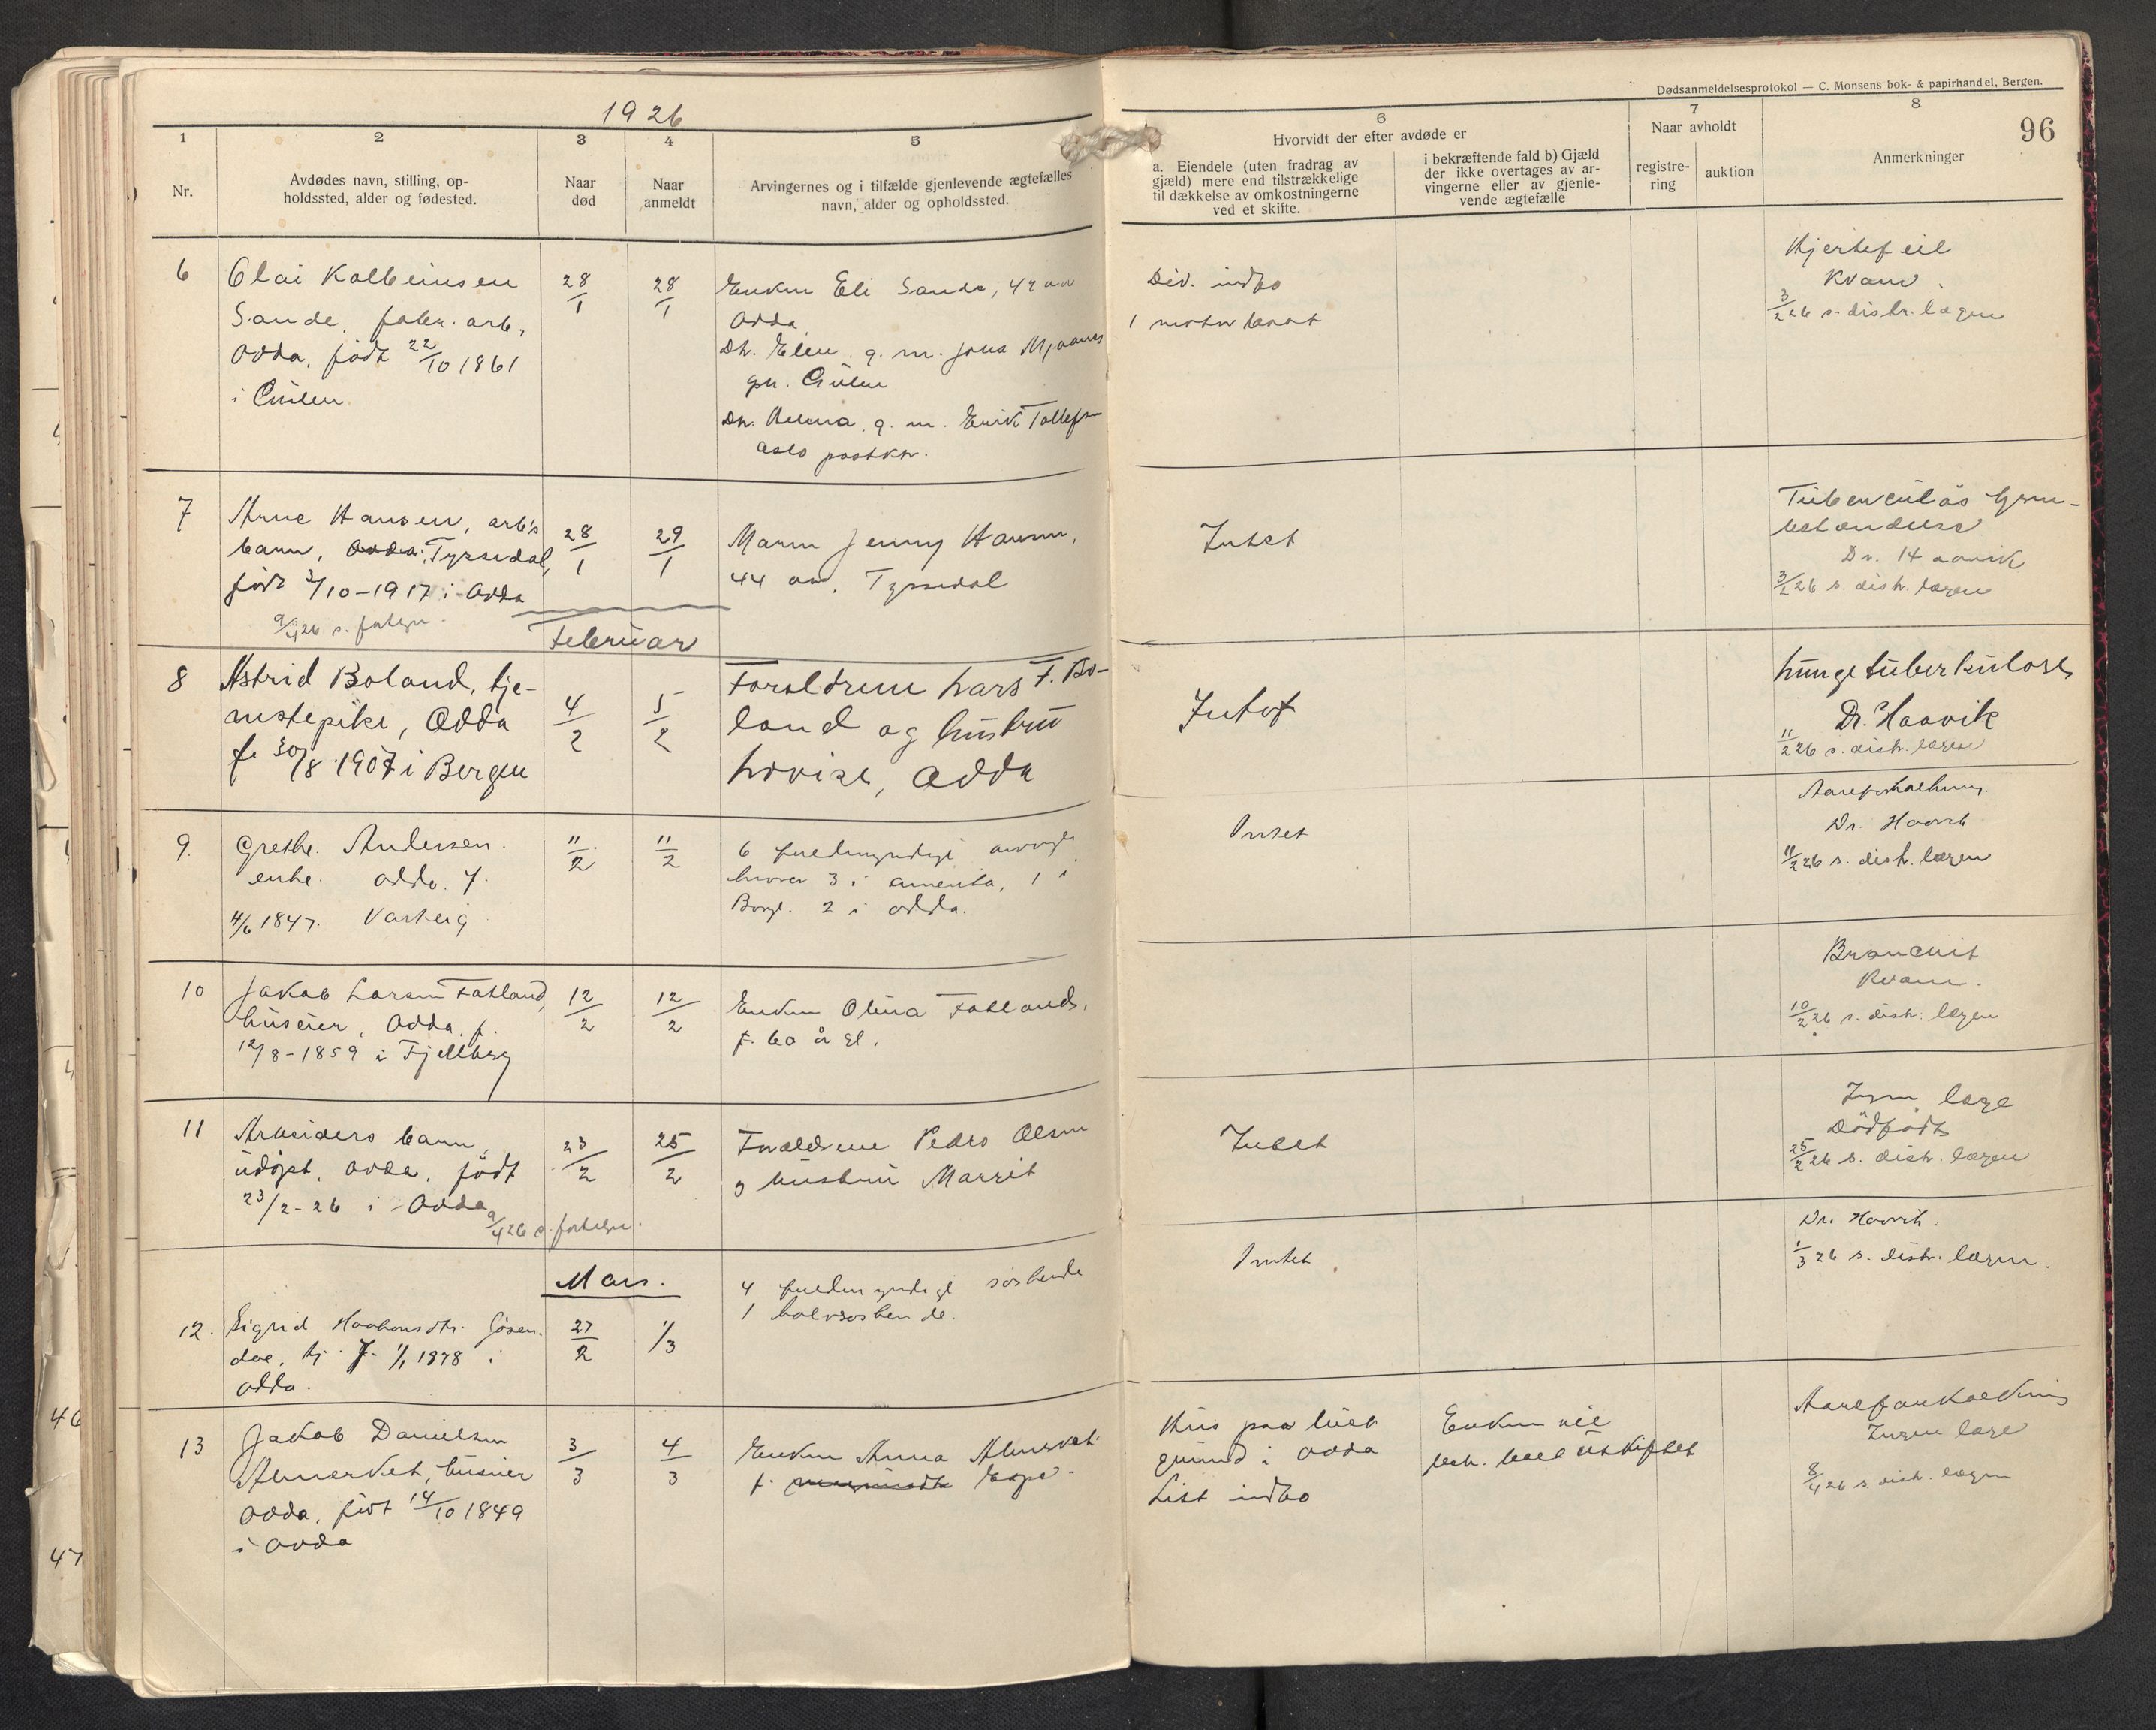 1926
Dødsanmeldelsesprotokol — C. Monsens bok- & papirhandel, Bergen.
96
1
2
3
4
5
6
7
8
Nr.
Avdødes navn, stilling, op-
holdssted, alder og fødested.
Naar
død
Naar
anmeldt
Arvingernes og i tilfælde gjenlevende ægtefælles
navn, alder og opholdssted.
Hvorvidt der efter avdøde er
a. Eiendele (uten fradrag av
gjæld) mere end tilstrækkelige
til dækkelse av omkostningerne
ved et skifte.
i bekræftende fald b) Gjæld
der ikke overtages av ar-
vingerne eller av gjenle-
vende ægtefælle
Naar avholdt
registre-
ring
auktion
Anmerkninger
6
Olai Kolbeinsen
Sande, fabr. arb.,
Odda, født 22/10 1861
i Gulen
28/1
28/1
Enken Eli Sande,
Odda
Dtr. Elen, g. m. Jens
Gulen
Dtr. Helena, g. m. Erik Tollefsen
Oslo postktr.
Div. indbo
1 motorbaat
Hjertefeil
Kvam
3/2 26 s. distr. lægen
7
Arne Hansen, arb's
barn, Odda, Tyssedal,
født 3/10-1917 i Odda
9/4 26 s. fortegn.
28/1
29/1
Moren Jenny Hansen,
44 aar, Tyssedal
Intet
Tuberculøs hjerne-
betændelse
Dr. Haavik
3/2 26 s. distr. lægen
Februar
8
Astrid Boland, tje-
nestepike, Odda
f. 30/8 1907 i Bergen
4/2
5/2
Forældrene Lars T. Bo-
land og hustru
Lovise, Odda
Intet
Lungetuberkulose
Dr. Haavik
11/2 26 s. distr. lægen
9.
Grethe Andersen.
enke. Odda. f.
4/6 1847. Varteig
11/2
11/2
6 fuldmyndige arvinger
hvorav 3 i Amerika, 1 i
2 i Odda.
Intet
Aareforkalkning.
Dr. Haavik
11/2 26 s. distr. lægen
10
Jakob Larsen Fatland,
huseier, Odda, f.
12/8-1859 i Fjellberg
12/2
12/2
Enken Olina Fatland,
f. 60 år gl.
Bronchit
Kvam.
10/2 26 s. distr. lægen
11
Arbeiders barn,
udøpt, Odda, født
23/2-26 i Odda
9/4 26 s. fortegn.
23/2
25/2
Forældrene Pedro Olsen
og hustru Marrit
Intet
Ingen læge
Dødfødt
25/2 26 s. distr. lægen
Mars.
12.
Sigrid Haakonsdtr. Jøsen-
dal, tj. f. 1/1 1878 i
Odda.
27/2
1/3
4 fuldmyndige søskende
1 halvsøskende.
Intet
Dr. Haavik.
1/3 26 s. distr. lægen.
13
Jakob Danielsen
Almerket, huseier
Odda, født 14/10 1849
i Odda
3/3
4/3
Enken Anna Almerket
f. Espe
Hus paa
grund i Odda
Litt indbo
Enken vil
uskiftet
Aareforkalkning
Ingen læge
8/4 26 s. distr. lægen
46
47